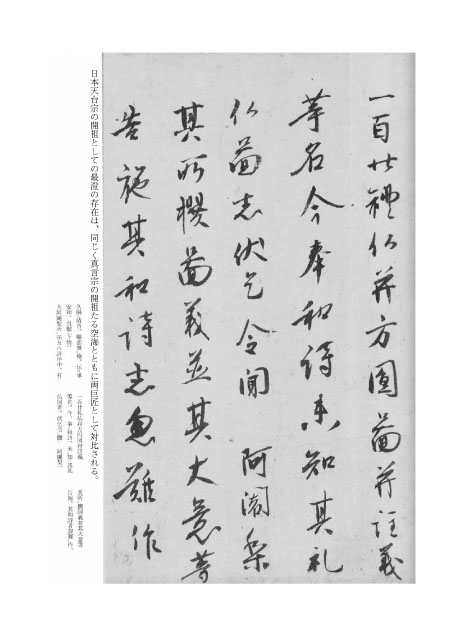 一百廿禮仏并方圓圖并註義
等名今奉和詩未知其礼
仏圖者伏乞令聞 阿闍梨
其所撰圖義並其大意等
告施其和詩者忽難作
日本天台宗の開祖としての最澄の存在は、同じく真言宗の開祖たる空海とともに両巨匠として対比される。